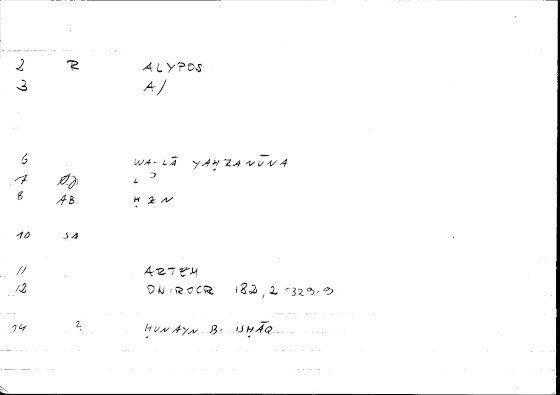 2 R ALYPOS
3 A/
6 WA-LĀ YAḤZANŪNA
7
8 AB. ḤZN
10 SA
11 ARTEM
12 ONIROCR 182, 2 - 329.9
14 2 ḤUNAYN B. ISḤĀQ